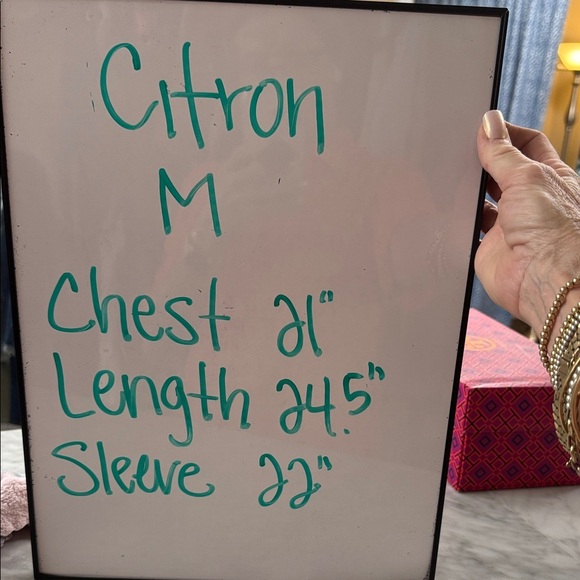 Citron
M
Chest 21"
Length 24.5"
Sleeve 22"